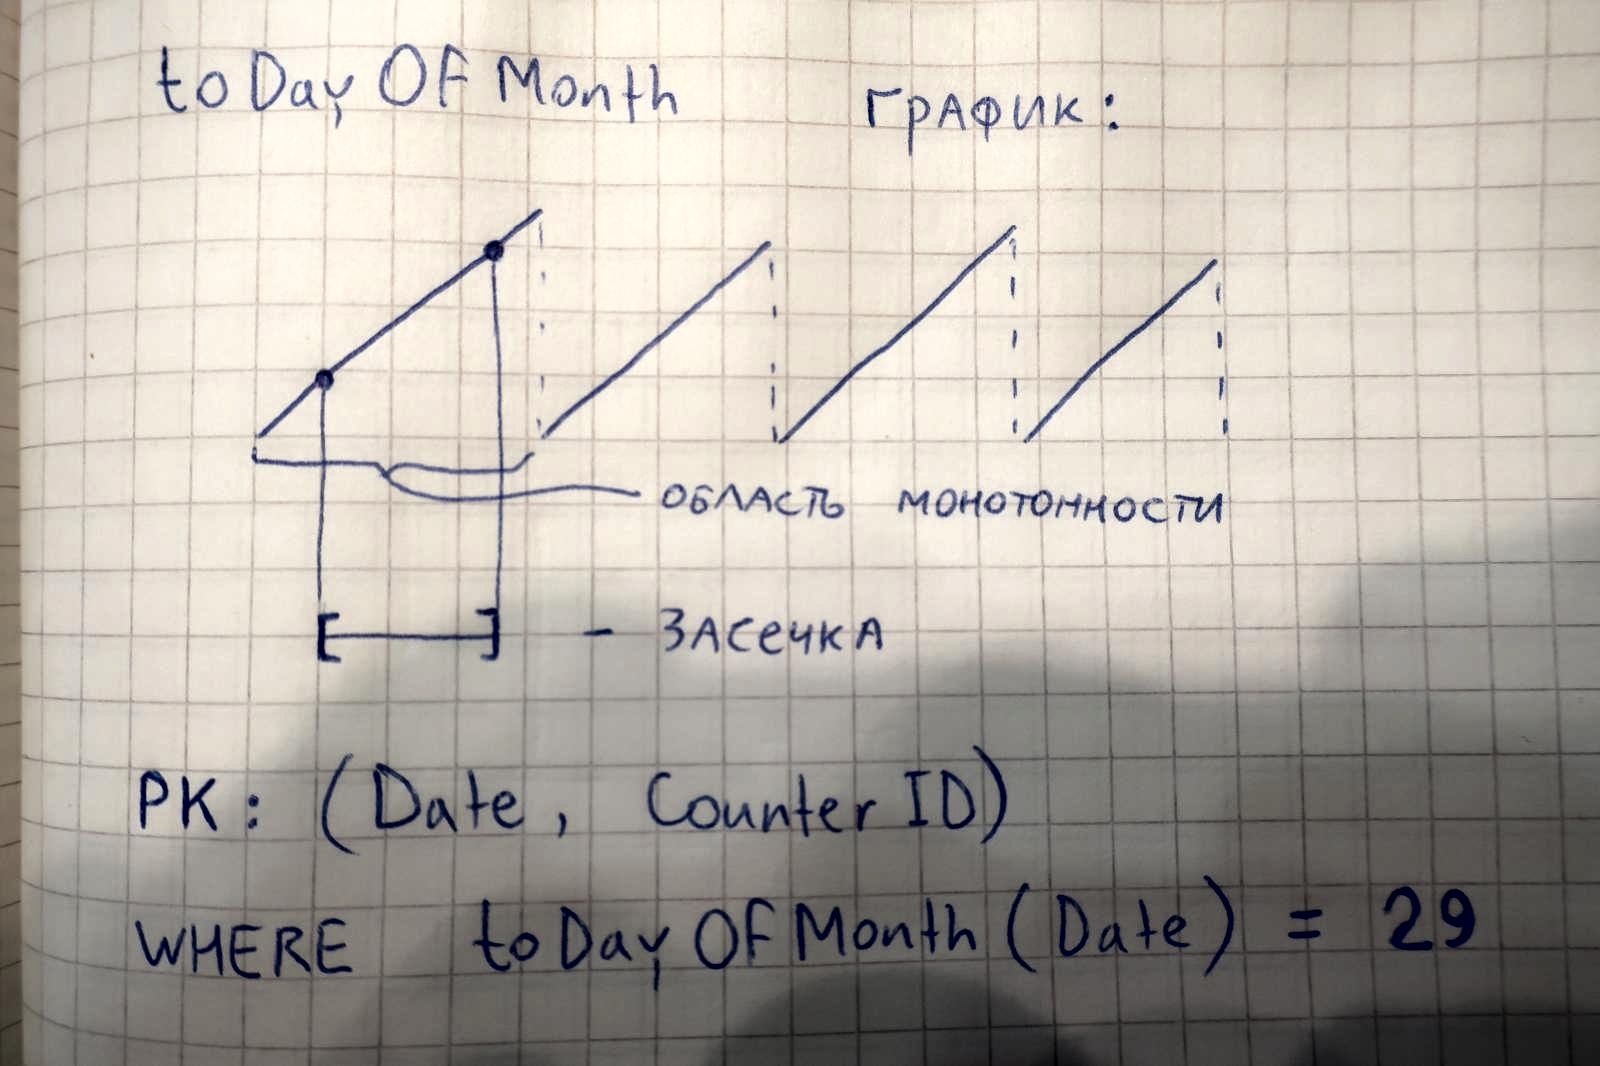 toDayOfMonth
ГРАФИК:
ОБЛАСТЬ МОНОТОННОСТИ
- ЗАСЕЧКА
PK: (Date, CounterID)
WHERE toDayOfMonth(Date) = 29